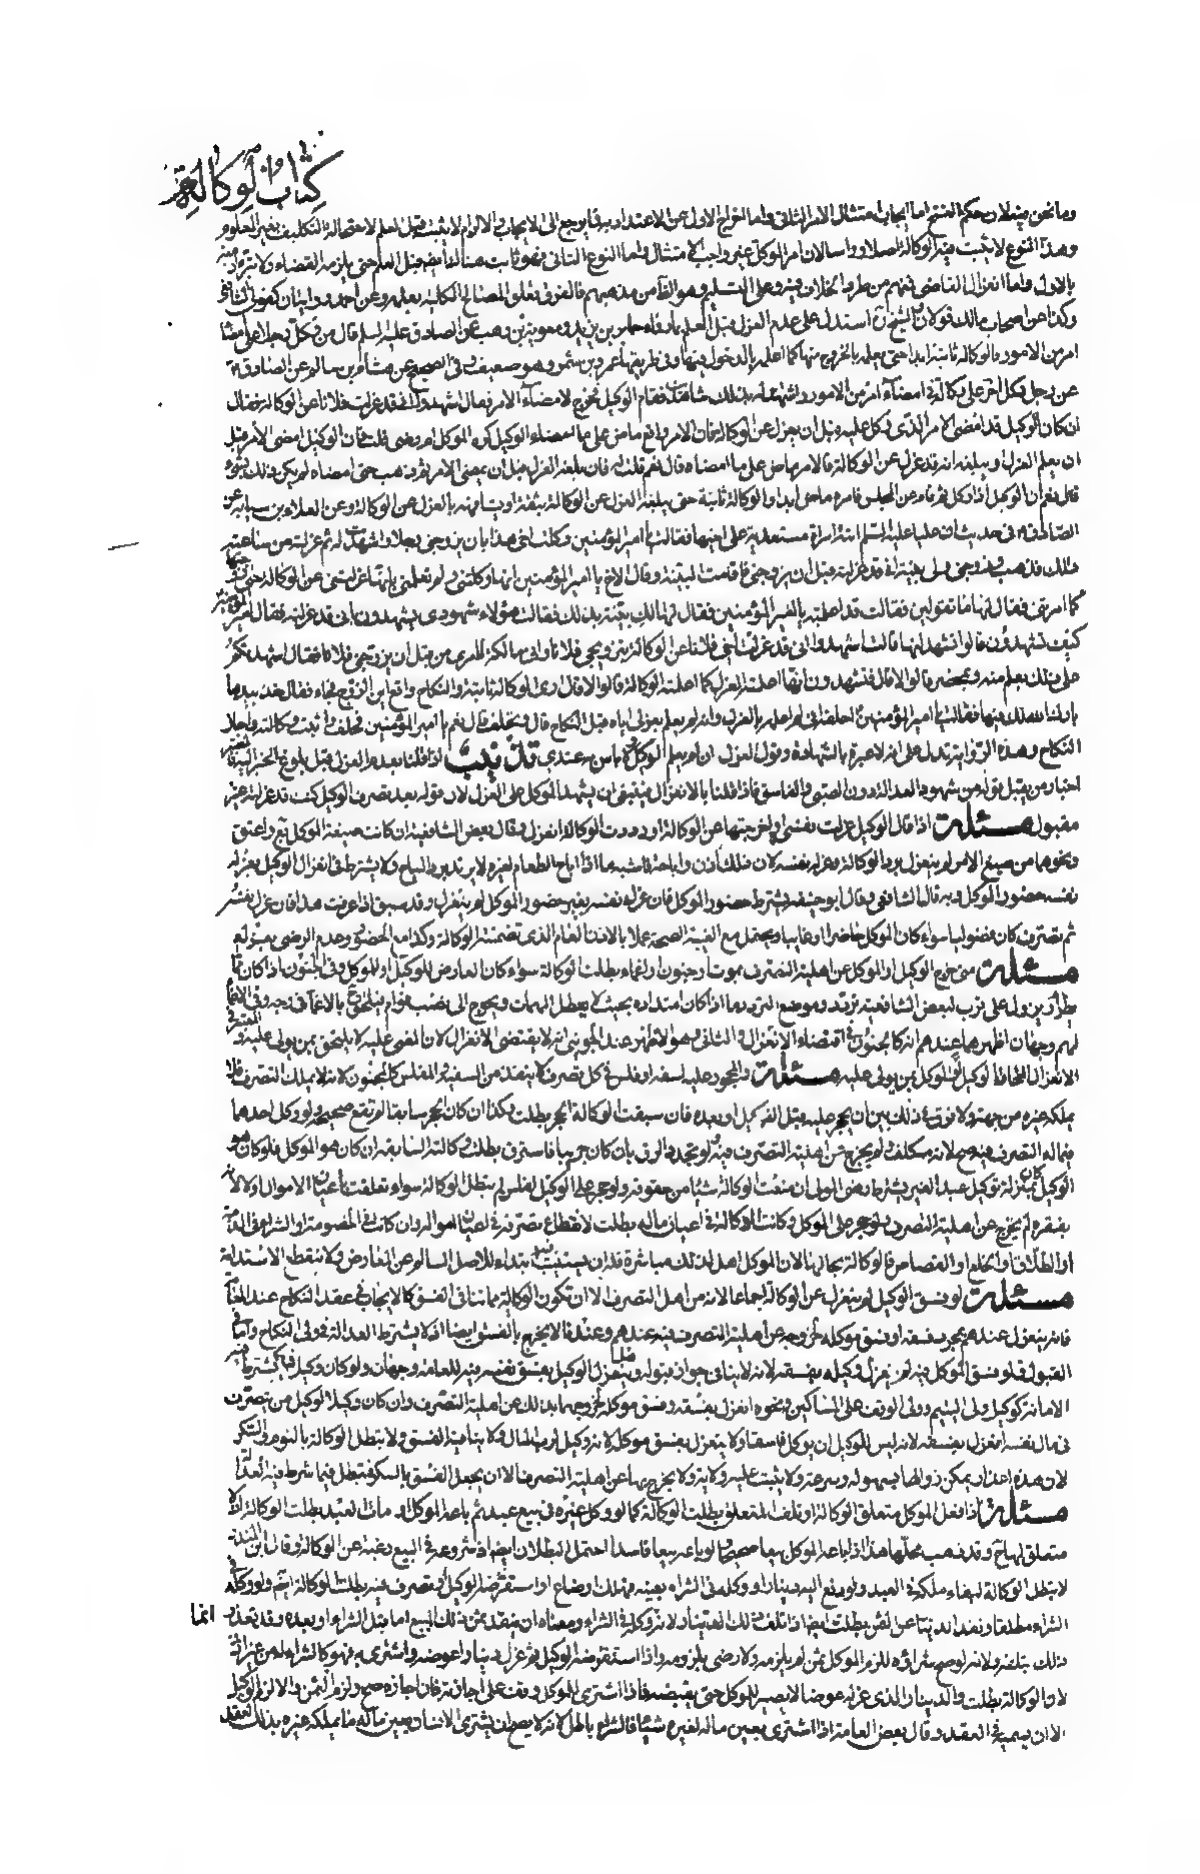 كتاب الوكالة
وما نحن فيه لان حكم الفسخ اما ايجاب امتثال الامر الثاني واما اخراج الاول عن الاعتداد به فما يرجع الى الايجاب والالزام لا يثبت قبل العلم لاستحالة التكليف بغير المعلوم
وهذا النوع لا يثبت في الوكالة اصلا وراسا لان امر الموكل غير واجب الامتثال واما النوع الثاني فهو ثابت هنا ايضا قبل العلم حتى يلزمه القضاء ولا تبرء ذمته
بالاول واما انعزال القاضي فمنهم من طرد الخلاف فيه وعلى التسليم وهو الظاهر من مذهبهم فالفرق تعلق المصالح الكلية بعمله وعن احمد روايتان كقولي الشافعي
وكذا عن اصحاب مالك قولان والشيخ ره استدل على عدم العزل قبل العلم بما رواه جابر بن يزيد ومعوية بن وهب عن الصادق عليه السلم قال من وكل رجلا على امضاء
امر من الامور فالوكالة ثابتة ابدا حتى يعلمه بالخروج منها كما اعلمه بالدخول فيها وفي طريقها عمرو بن شمر وهو ضعيف وفي الصحيح عن هشام بن سالم عن الصادق ع
عن رجل وكل آخر على وكالة في امضاء امر من الامور واشهد له بذلك شاهدين فقام الوكيل فخرج لامضاء الامر فقال اشهدوا اني قد عزلت فلانا عن الوكالة فقال
ان كان الوكيل قد امضى الامر الذي وكل عليه قبل ان يعزل عن الوكالة فان الامر واقع ماض على ما امضاه الوكيل كره الموكل ام رضي قلت فان الوكيل امضى الامر قبل
ان يعلم العزل او يبلغه انه قد عزل عن الوكالة فالامر ماض على ما امضاه قال نعم قلت له فان بلغه العزل قبل ان يمضي الامر ثم ذهب حتى امضاه لم يكن ذلك بشيء
قال نعم ان الوكيل اذا وكل ثم قام عن المجلس فامره ماض ابدا والوكالة ثابتة حتى يبلغه العزل عن الوكالة بثقة او يشافهه بالعزل عن الوكالة وعن العلاء بن سيابة عن
الصادق ع في حديث ان عليا عليه السلم اتته امراة مستعدية على اخيها فقالت يا امير المؤمنين وكلت اخي هذا بان يزوجني رجلا واشهدت له ثم عزلته من ساعته
تلك فذهب فزوجني ولي بينة اني قد عزلته قبل ان يزوجني فاقامت البينة وقال الاخ يا امير المؤمنين انها وكلتني ولم تعلمني بانها عزلتني عن الوكالة حتى زوجتها
كما امرتني فقال لها ما تقولين فقالت قد اعلمته يا امير المؤمنين فقال لها الك بينة بذلك فقالت هؤلاء شهودي يشهدون باني قد عزلته فقال امير المؤمنين
كيف تشهدون قالوا نشهد انها قالت اشهدوا اني قد عزلت اخي فلانا عن الوكالة بتزويجي فلانا واني مالكة لامري من قبل ان يزوجني فلانا فقال اشهدتكم
على ذلك بعلم منه ومحضر قالوا لا قال فتشهدون انها اعلمته العزل كما اعلمته الوكالة قالوا لا قال ارى الوكالة ثابتة والنكاح واقع اين الزوج فجاء فقال خذ بيدها
بارك الله لك فيها فقالت يا امير المؤمنين احلفه اني لم اعلمه بالعزل وانه لم يعلم بعزلي اياه قبل النكاح قال وتحلف قال نعم يا امير المؤمنين فحلف واثبت وكالته واجاز
النكاح وهذه الرواية تدل على انه لا عبرة بالشهادة وقول العزل ان لم يعلم الوكيل ولا باس به عندي تذنيب اذا قلنا بعدم العزل قبل بلوغ الخبر اليه فالمعتبر
اخبار من يقبل قوله من شهود العدالة دون الصبي والفاسق فاذا قلنا بالانعزال فينبغي ان يشهد الموكل على العزل لان قوله بعد تصرف الوكيل كنت قد عزلته غير
مقبول مسئلة اذا قال الوكيل عزلت نفسي او اخرجتها عن الوكالة او رددت الوكالة انعزل وقال بعض الشافعية ان كانت صيغة الموكل بع واعتق
ونحوهما من صيغ الامر لم ينعزل برد الوكالة وعزله نفسه لان ذلك اذن واباحة فاشبه ما اذا اباح الطعام لغيره لا يرتد برد المباح له ولا يشترط في انعزال الوكيل بعزله
نفسه حضور الموكل وبه قال الشافعي وقال ابو حنيفة يشترط حضور الموكل فان عزله نفسه بغير حضور الموكل لم ينعزل وقد سبق اذا عرفت هذا فان عزل نفسه
ثم تصرف كان فضوليا سواء كان الموكل حاضرا او غايبا ويحتمل مع الغيبة الصحة عملا بالاذن العام الذي تضمنته الوكالة وكذا مع الحضور وعدم الرضى بعزله
مسئلة متى خرج الوكيل او الموكل عن اهلية التصرف بموت او جنون او اغماء بطلت الوكالة سواء كان العارض للوكيل او للموكل وفي الجنون اذا كان مما
يطرأ ويزول على قرب لبعض الشافعية تردد وموضع التردد ما اذا كان امتداده بحيث لا يعطل المهمات ويحوج الى نصب قوام ويلحق بالاغماء في وجه وفي الاغماء
لهم وجهان اظهرهما عندهم انه كالجنون في اقتضاء الانعزال والثاني وهو الاظهر عند الجويني انه لا يقتضي الانعزال لان المغمى عليه لا يلتحق بمن يولى عليه والمعتبر في
الانعزال التحاق الوكيل او الموكل بمن يولى عليه مسئلة والمحجور عليه لسفه او فلس في كل تصرف لا ينفذ من السفيه والمفلس كالمجنون لانه لا يملك التصرف فلا
يملكه غيره من جهته ولا فرق في ذلك بين ان يحجر عليه قبل التوكيل او بعده فان سبقت الوكالة الحجر بطلت وكذا ان كان الحجر سابقا لم تقع صحيحة ولو وكل احدهما
فيما له التصرف فيه صح لانه مكلف لم يخرج عن اهلية التصرف فيه ولو تجدد الرق بان كان حربيا فاسترق بطلت وكالته السابقة ان كان هو الموكل ولو كان هو
الوكيل كان بمنزلة توكيل عبد الغير يشترط رضى المولى ان منعت الوكالة شيئا من حقوقه ولو حجر على الوكيل لفلس لم تبطل الوكالة سواء تعلقت باعيان الاموال او لا لانه
بفقره لم يخرج عن اهلية التصرف ولو حجر على الموكل وكانت الوكالة في اعيان ماله بطلت لانقطاع تصرفه في اعيان امواله وان كانت في الخصومة او الشراء في الذمة
او الطلاق او الخلع او القصاص فالوكالة بحالها لان الموكل اهل لذلك مباشرة فله ان يستنيب فيه ابتداء للاصل السالم عن المعارض ولا تنقطع الاستدامة
مسئلة لو فسق الوكيل لم ينعزل عن الوكالة اجماعا لانه من اهل التصرف الا ان تكون الوكالة مما ينافي الفسق كالايجاب في عقد النكاح عند العامة
فانه ينعزل عندهم بمجرد فسقه او فسق موكله لخروجه عن اهلية التصرف فيه عندهم وعندنا لا يخرج بالفسق ايضا اذ لا يشترط العدالة في ولي النكاح واما في
القبول فلو فسق الموكل فيه لم ينعزل وكيله بفسقه لانه لا ينافي جواز قبوله وهل ينعزل الوكيل بفسق نفسه فيه للعامة وجهان ولو كان وكيلا فيما تشترط فيه
الامانة كوكيل ولي اليتيم وولي الوقف على المساكين ونحوه انعزل بفسقه وفسق موكله لخروجهما بذلك عن اهلية التصرف وان كان وكيلا لوكيل من يتصرف
في مال نفسه انعزل بفسقه لانه ليس للوكيل ان يوكل فاسقا ولا ينعزل بفسق موكله لانه وكيل لرب المال ولا ينافيه الفسق ولا تبطل الوكالة بالنوم والسكر
لان هذه اعذار يمكن زوالها بسهولة وسرعة ولا يثبت عليه ولاية ولا يخرج بها عن اهلية التصرف الا ان يحصل الفسق بالسكر فتبطل فيما شرط فيه العدالة
مسئلة اذا فعل الموكل متعلق الوكالة او تلف المتعلق بطلت الوكالة كما لو وكل غيره في بيع عبد ثم باعه الموكل او مات العبد بطلت الوكالة اذ لا
متعلق لها بع وقد ذهب محلها هذا اذا باعه الموكل بيعا صحيحا ولو باعه بيعا فاسدا احتمل البطلان ايضا اذ شروعه في البيع رغبة عن الوكالة وقال ابن المنذر
لا تبطل الوكالة لبقاء ملكه في العبد ولو دفع اليه دينارا ووكله في الشراء بعينه فهلك او ضاع او استقرضه الوكيل او تصرف فيه بطلت الوكالة ايضا ولو وكله في
الشراء مطلقا ونقد الدينار عن الثمن بطلت ايضا اذا تلف ذلك الدينار لانه وكله في الشراء ومعناه ان ينقد ثمن ذلك المبيع اما قبل الشراء او بعده وقد تعذر انما
ذلك بتلفه ولانه لو صح شراؤه للزم الموكل ثمن لم يلتزمه ولا رضي بلزومه واذا استقرضه الوكيل ثم عزل دينارا عوضه واشترى به فهو كالشراء له من غير اذن
لان الوكالة بطلت والدينار الذي عزله عوضا لا يصير للموكل حتى يقبضه فاذا اشترى للموكل وقف على اجازته فان اجازه صح ولزم الثمن والا لزم الوكيل
الا ان يسميه في العقد وقال بعض العامة اذا اشترى بعين ماله لغيره شيئا فالشراء باطل لانه لا يصح ان يشتري الانسان بعين ماله ما يملكه غيره بذلك العقد